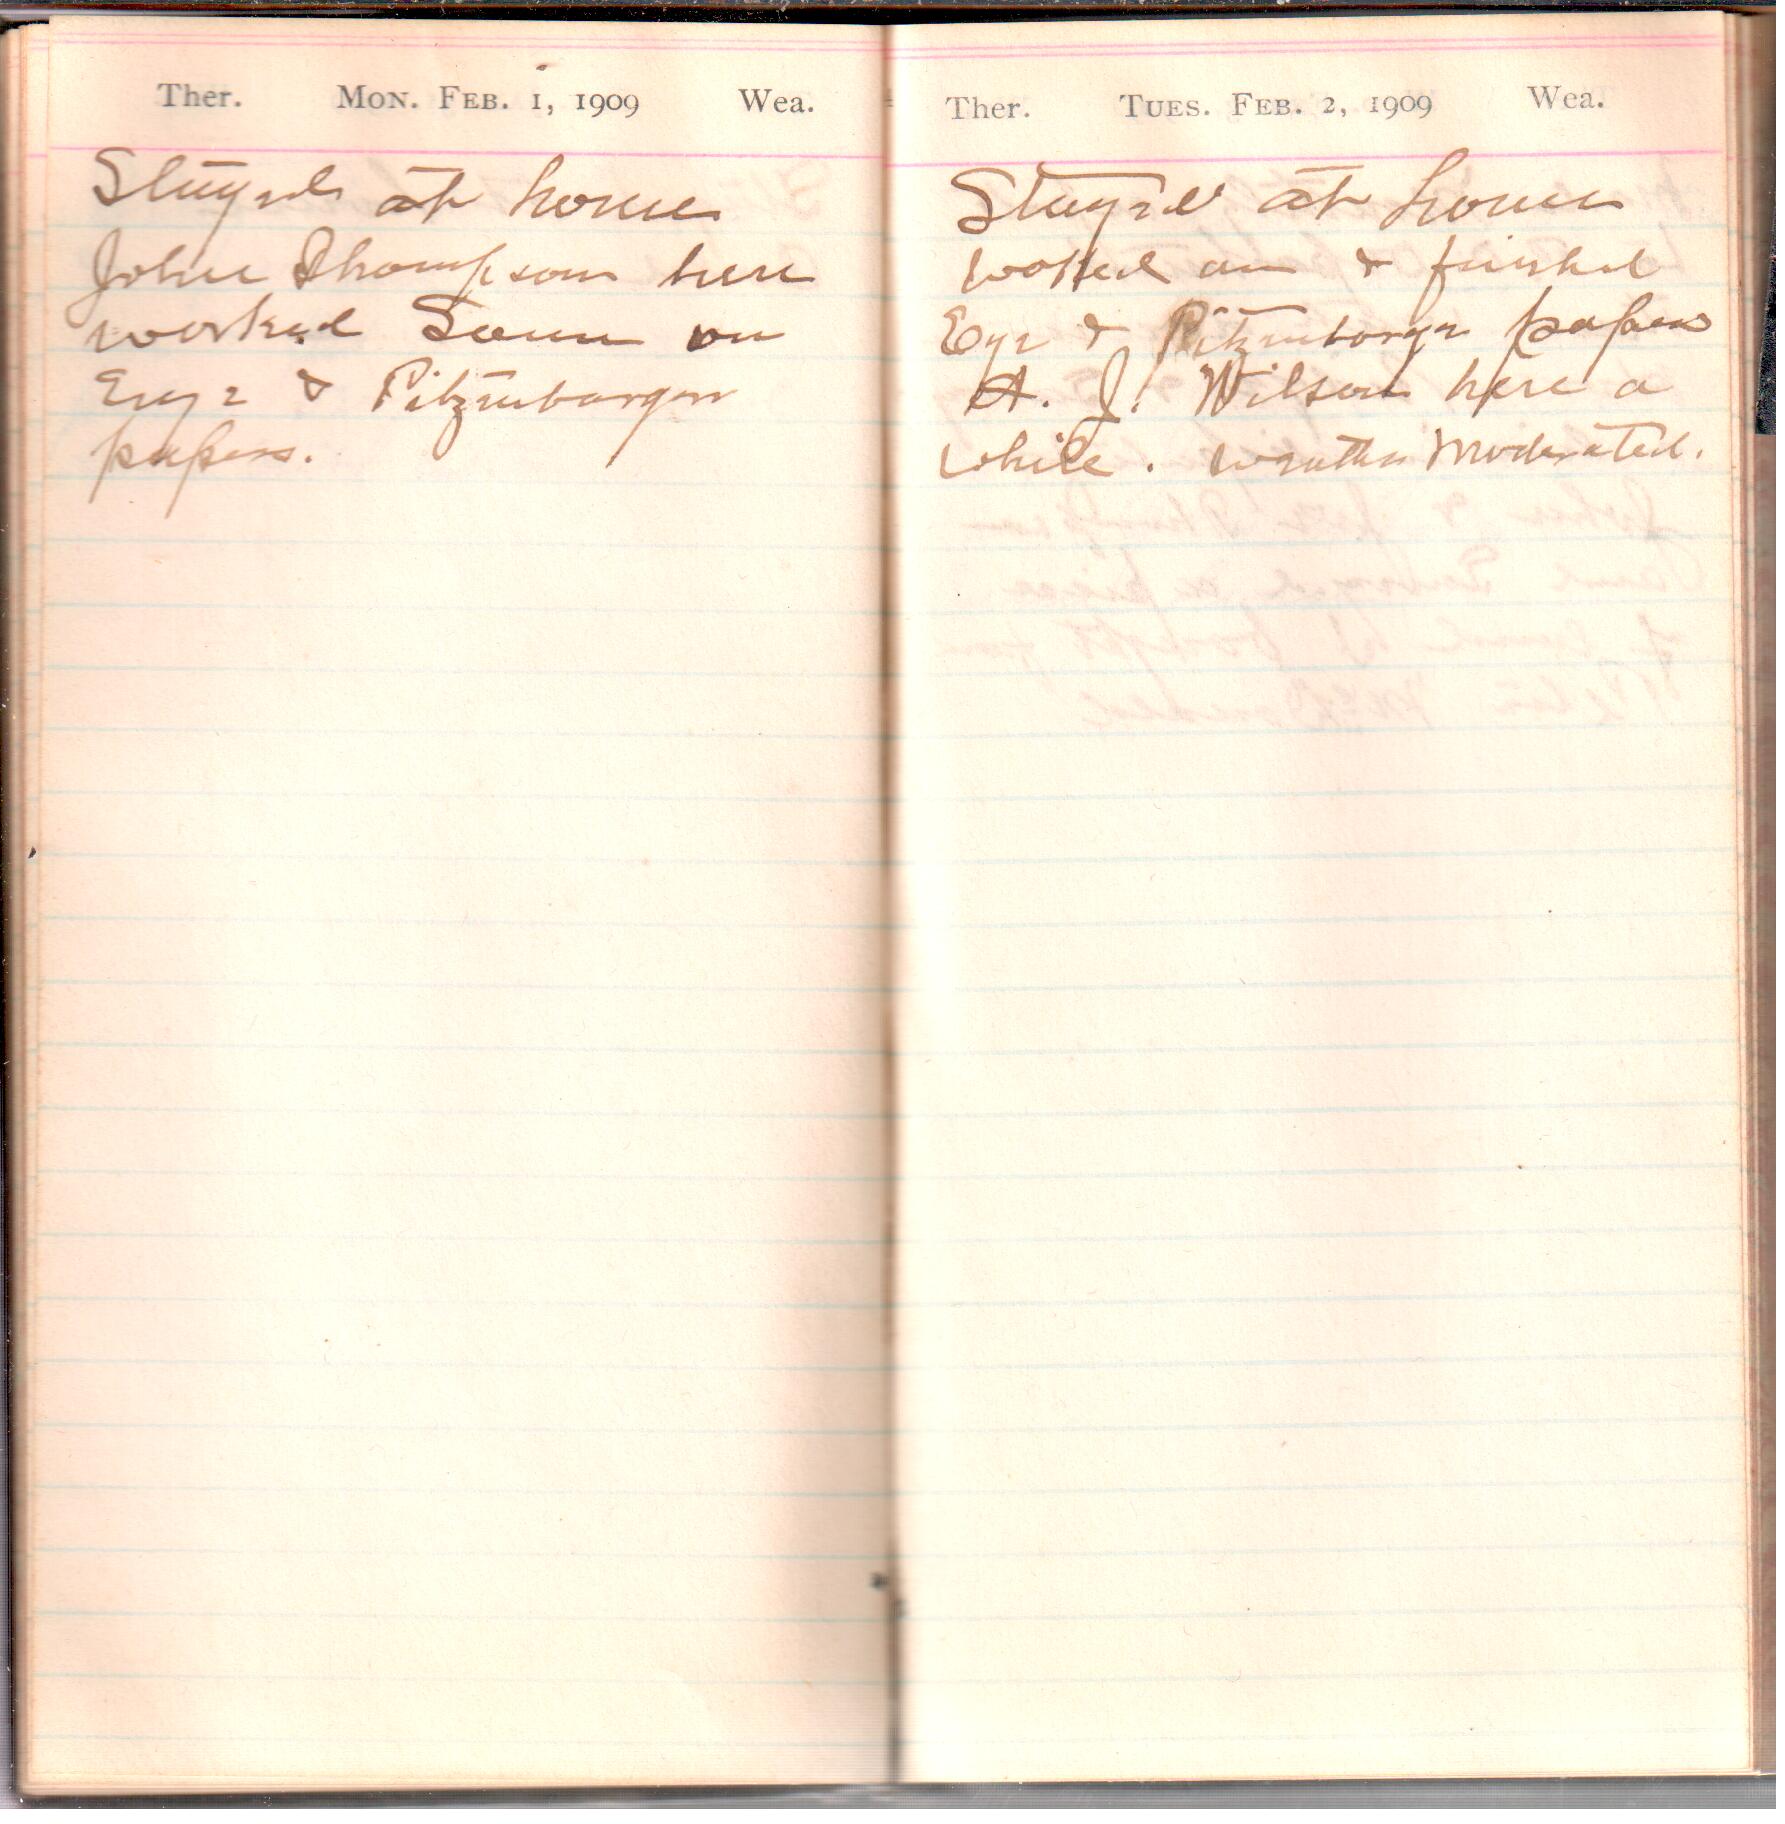 Ther. Mon. Feb. 1, 1909 Wea.
Stayed at home
John Thompson here
worked Some on
Eyr & Pitzenbarger
papers.
Ther. Tues. Feb. 2, 1909 Wea.
Stayed at home
worked on & finished
Eyr & Pitzenbarger papers
A. J. Wilson here a
while. weather Moderated.